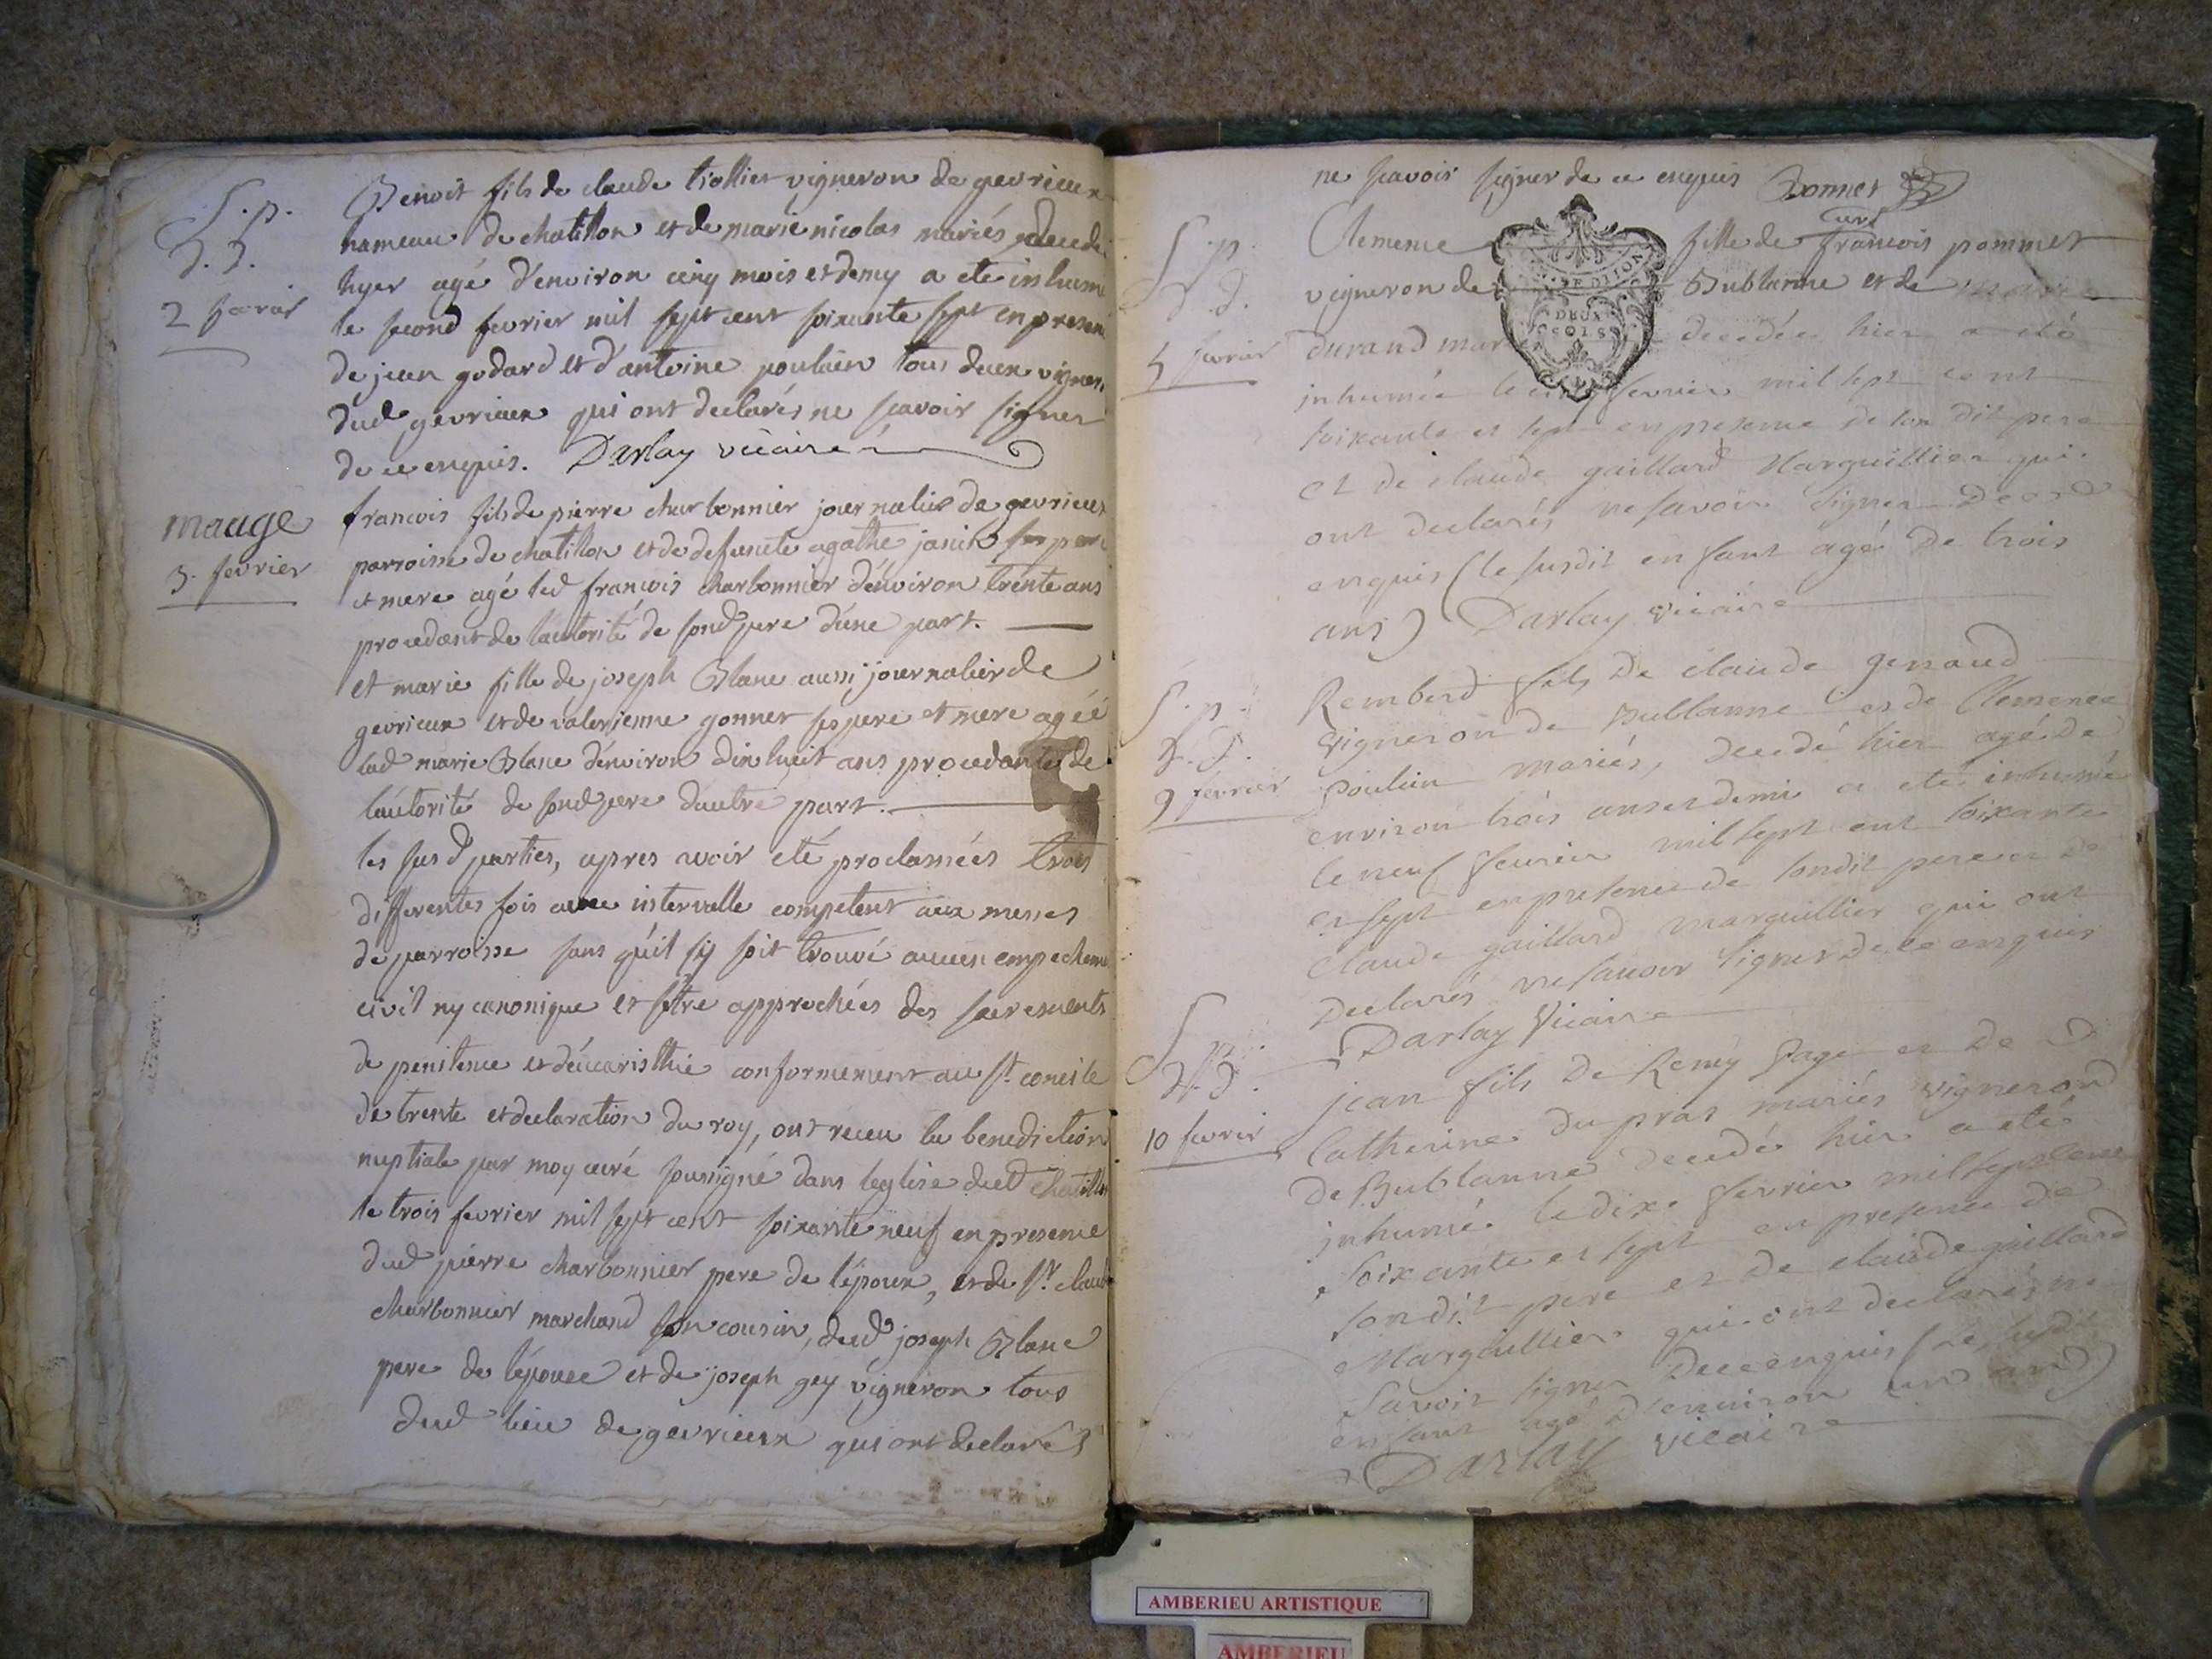 S. p.
d. d.
2 fevrier
Benoit fils de claude trollier vigneron de gevrieux
hameau de chatillon et de marie nicolas mariés, decedé
hyer agé d'environ cinq mois et demy a eté inhumé
le second fevrier mil sept cent soixante sept en presen
de jean godard et d'antoine poulain tous deux vigner
dud gevrieux qui ont declarés ne scavoir signer
de ce enquis. Darlay vicaire
mauge
3. fevrier
francois fils de pierre charbonnier journalier de gevrieux
parroisse de chatillon et de defuncte agathe janin ses pere
et mere agé led francois charbonnier d'environ trente ans
procedant de l'autorité de sond pere d'une part.
et marie fille de joseph Blanc aussi journalier de
gevrieux et de valerienne gonnet ses pere et mere agéé
lad marie Blanc d'environ dix huit ans procedante de
l'autorité de sond pere d'autre part.
les susd parties, apres avoir eté proclamées trois
differentes fois avec intervalle competent aux messes
de parroisse sans qu'il s'y soit trouvé aucun empecheme
civil ny canonique et s'etre approchées des sacrements
de penitence et d'eucaristhie conformement au st. concile
de trente et declaration du roy, ont receu la benediction
nuptiale par moy curé soussigné dans l'eglise dud chatillon
le trois fevrier mil sept cent soixante neuf en presence
dud pierre charbonnier pere de l'epoux, et de sr. claude
charbonnier marchand son cousin, dud joseph Blanc
pere de l'epouse et de joseph gey vigneron tous
dud lieu de gevrieux qui ont declarés
ne scavoir signer de ce enquis Bonnet
curé
S. p.
d.
5 fevrier
Clemence fille de francois pommet
vigneron de Bublanne et de
durand mar decedée hier a eté
inhumée le cinq fevrier mil sept cent
soixante et sept en presence de son dit pere
et de claude gaillard Marguillier qui
ont declarés ne savoir signer de ce
enquis (le susdit enfant agé de trois
ans) Darlay vicaire
DE DIJON
DEUX
SOLS
S. p.
d. d.
9 fevrier
Remberd fils de claude genaud
vigneron de Bublanne et de Clemence
Poulin mariés, decedé hier agé de
environ trois ans et demi a eté inhumé
le neuf fevrier mil sept cent soixante
et sept en presence de sondit pere et de
Claude gaillard marguillier qui ont
declarés ne savoir signer de ce enquis
Darlay Vicaire
S. p.
d. d.
10 fevrier
jean fils de Remy Page et de
Catherine Dupras mariés vigneron
de Bublanne decedé hier a eté
inhumé le dixe fevrier mil sept cent
soixante et sept en presence de
son dit pere et de claude gaillard
Marguillier qui ont declarés ne
savoir signer de ce enquis (le susdit
enfant agé d'environ un and)
Darlay vicaire
AMBERIEU ARTISTIQUE
AMBERIEU